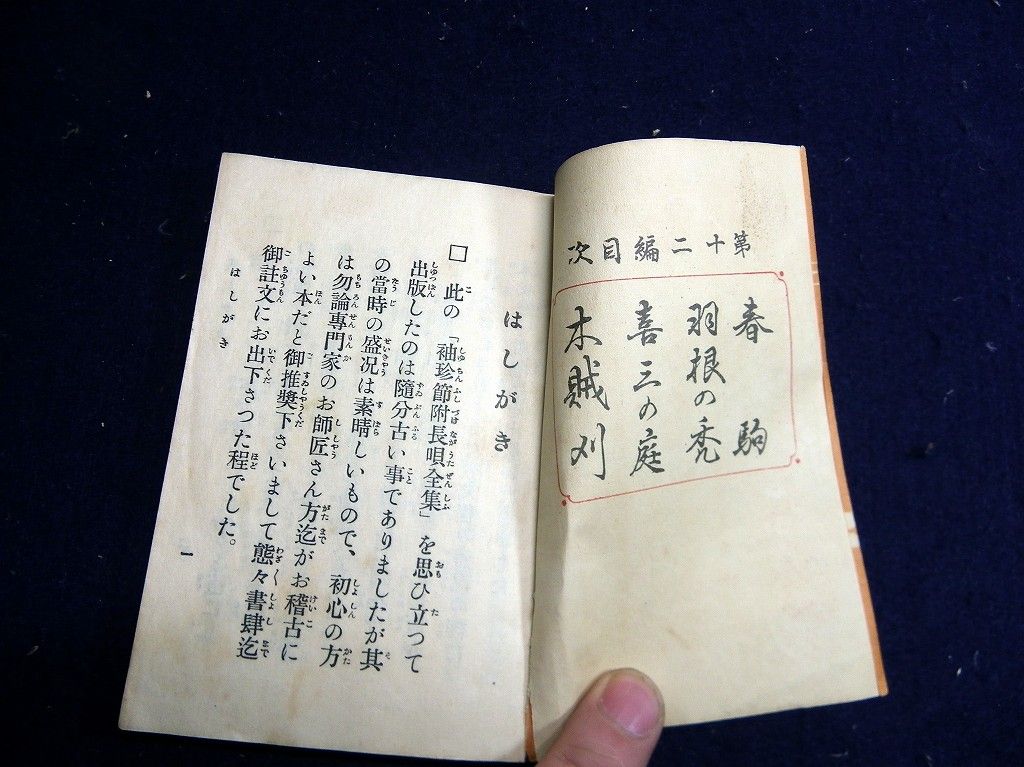 第十二編目次
春駒
羽根の禿
喜三の庭
木賊刈
はしがき
□此の「袖珍節附長唄全集」を思ひ立つて
出版したのは隨分古い事でありましたが其
の當時の盛况は素晴しいもので、初心の方
は勿論專門家のお師匠さん方迄がお稽古に
よい本だと御推奬下さいまして態々書肆迄
御註文にお出下さつた程でした。
はしがき
一